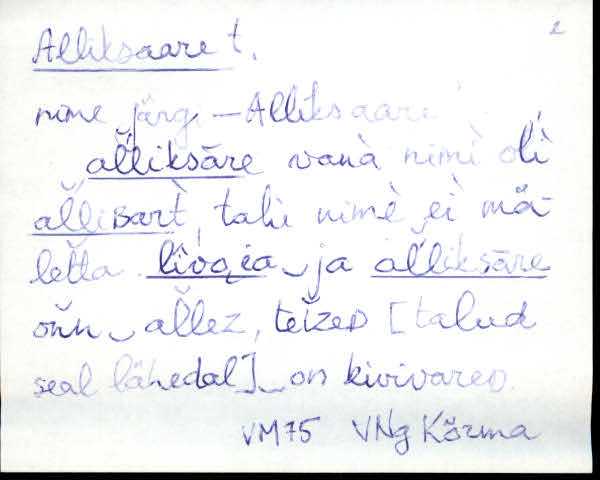 2
Alliksaare t.
nime järgi – Alliksaare
al̆liksāre vanà nimì olì
al̆liʙart̀, talu nimè ei mä-
letta. lîvaɢia ‿ ja al̆liksāre
oǹn ‿ al̆lez, teizeᴅ [talud
seal lähedal] ‿ on kivivareᴅ.
VM75 VNg Kõrma